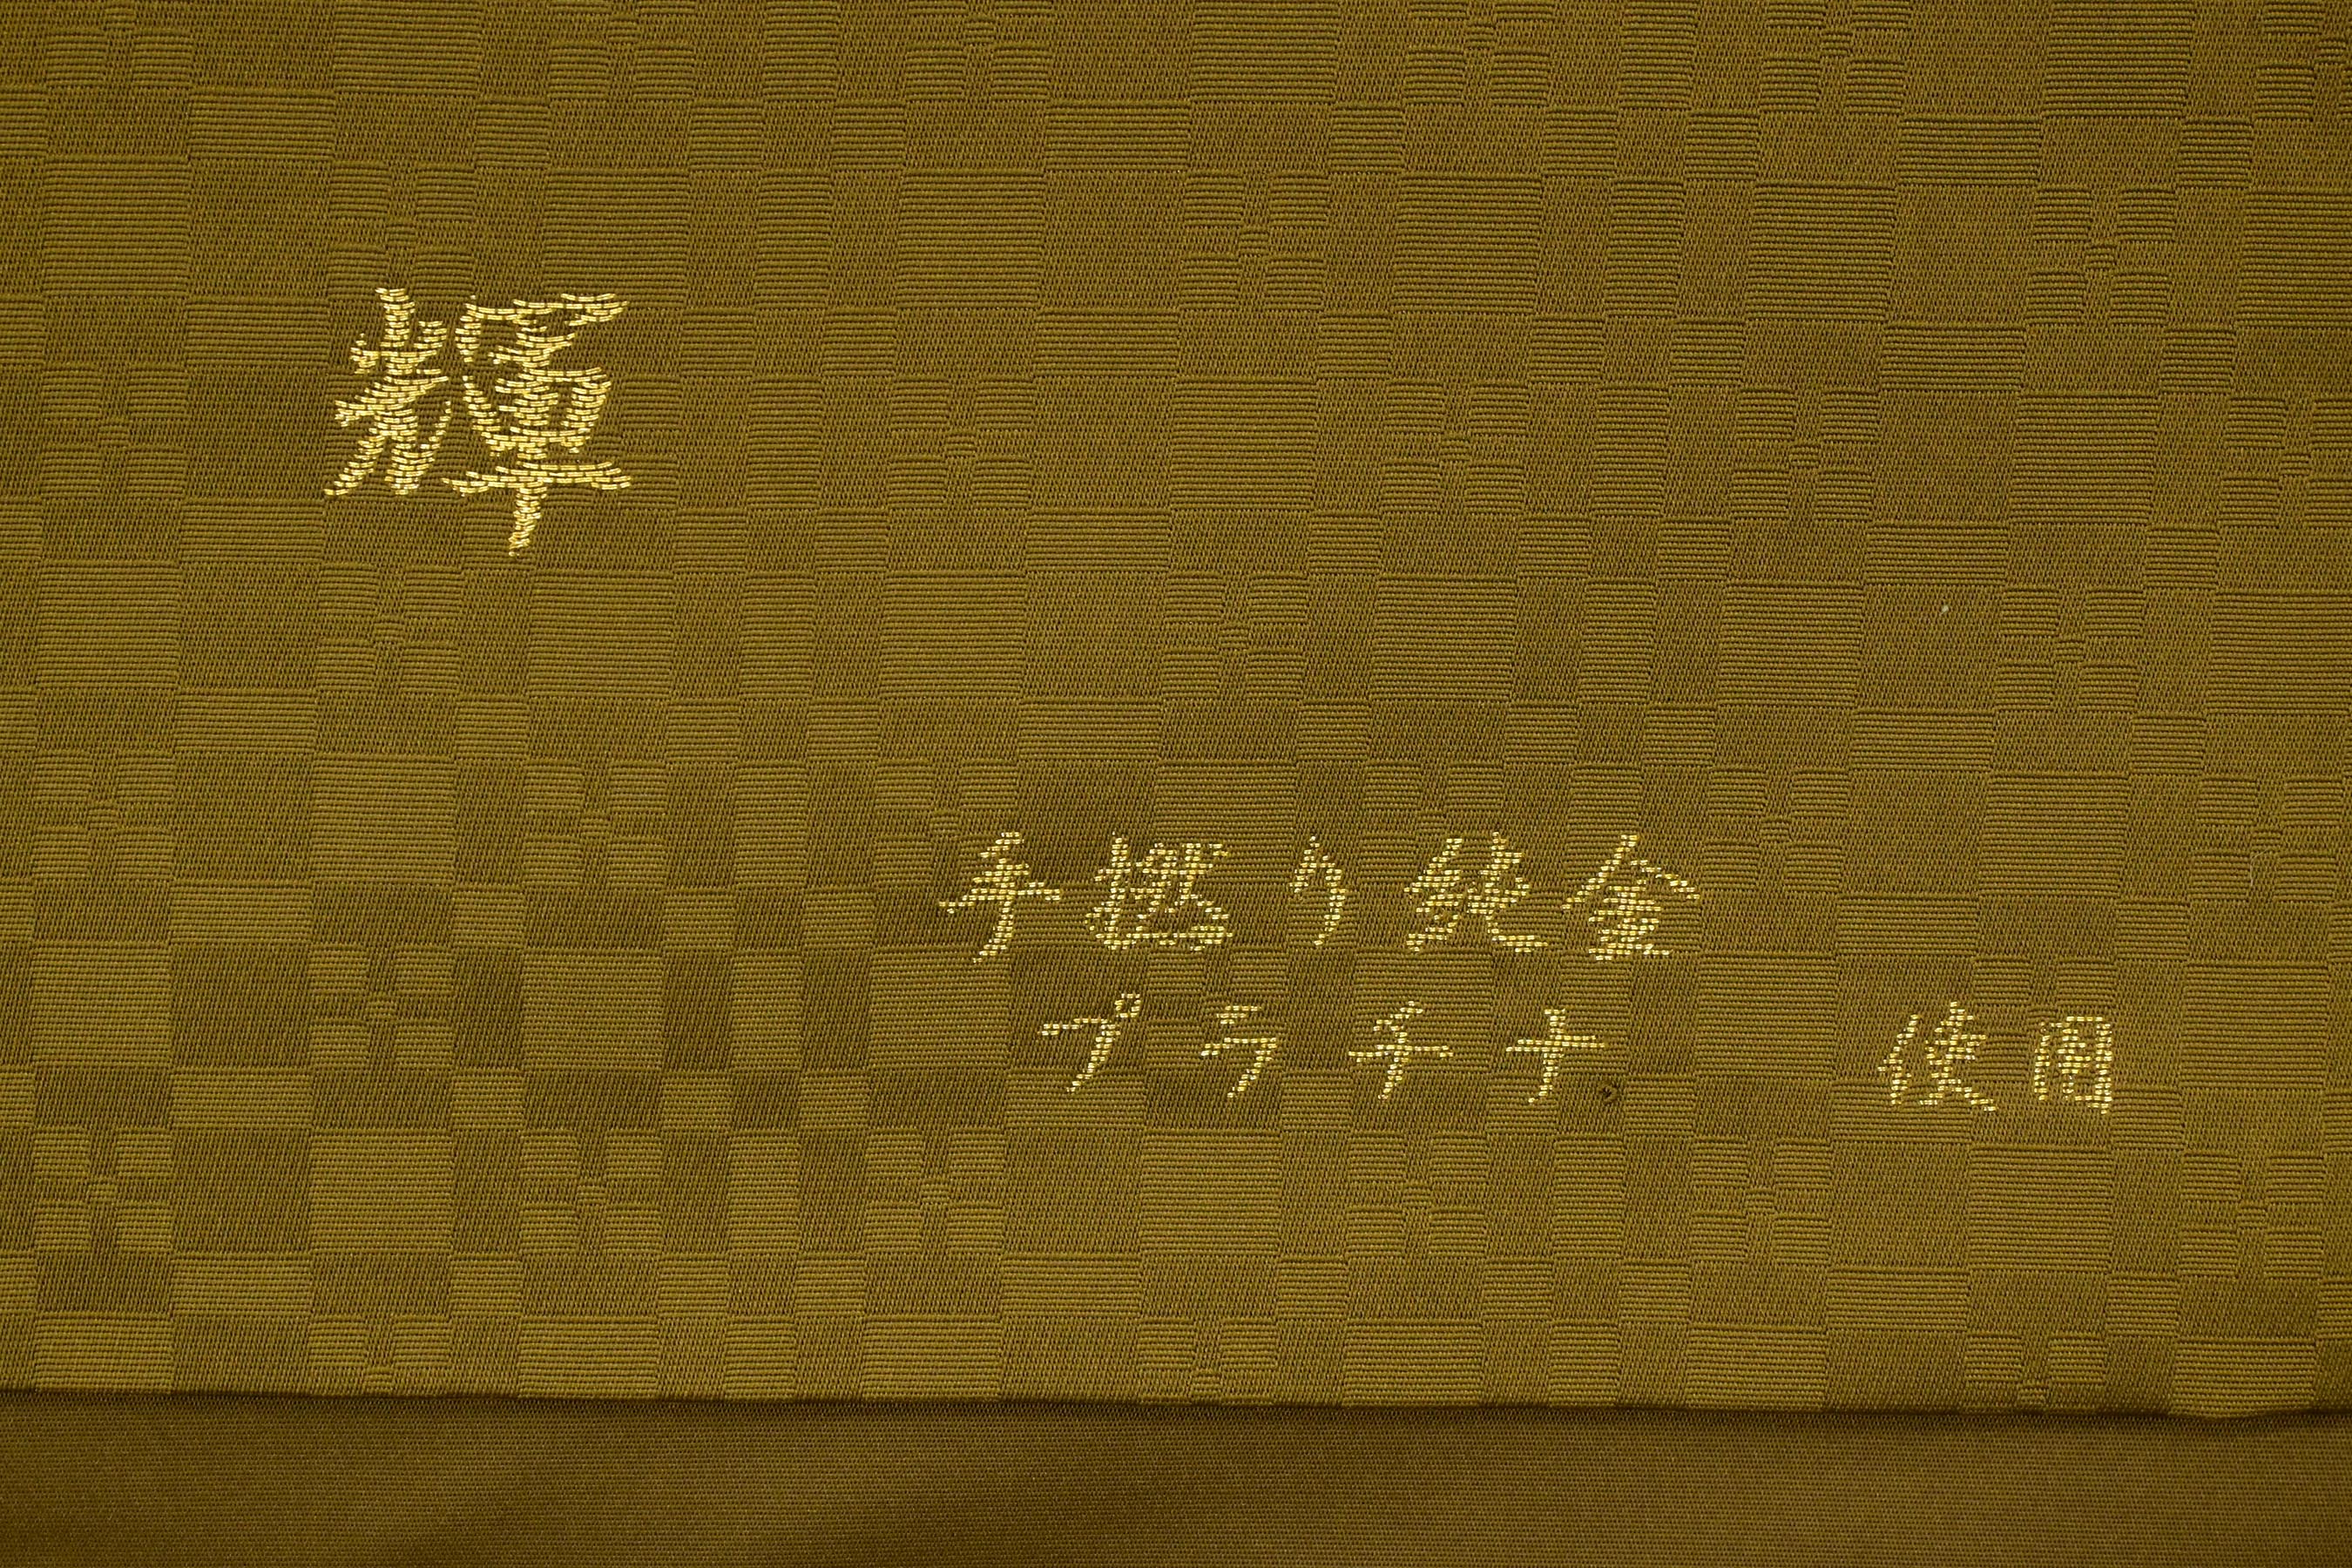 輝
手撚り純金
プラチナ 使用